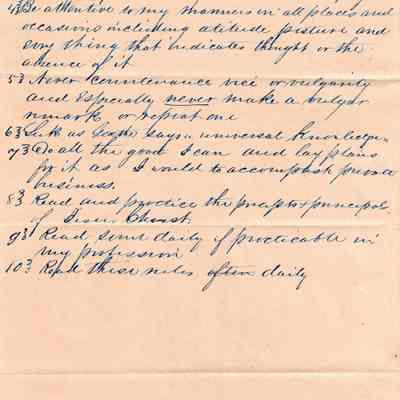 4th Be attentive to my manners in all places and
occasions including atitude posture and
evry thing that indicates thought or the
absence of it
5th Never countenance vice or vulgarity
and Especially never make a vulgar
remark or repeat one
6th Seek as says " universal knowledge "
7th Do all the good I can and lay plans
for it as I would to accomplish private
business.
8th Read and practice the precepts principal
of Jesus Christ.
9th Read some daily if practicable in
my profession
10th Read these rules often daily